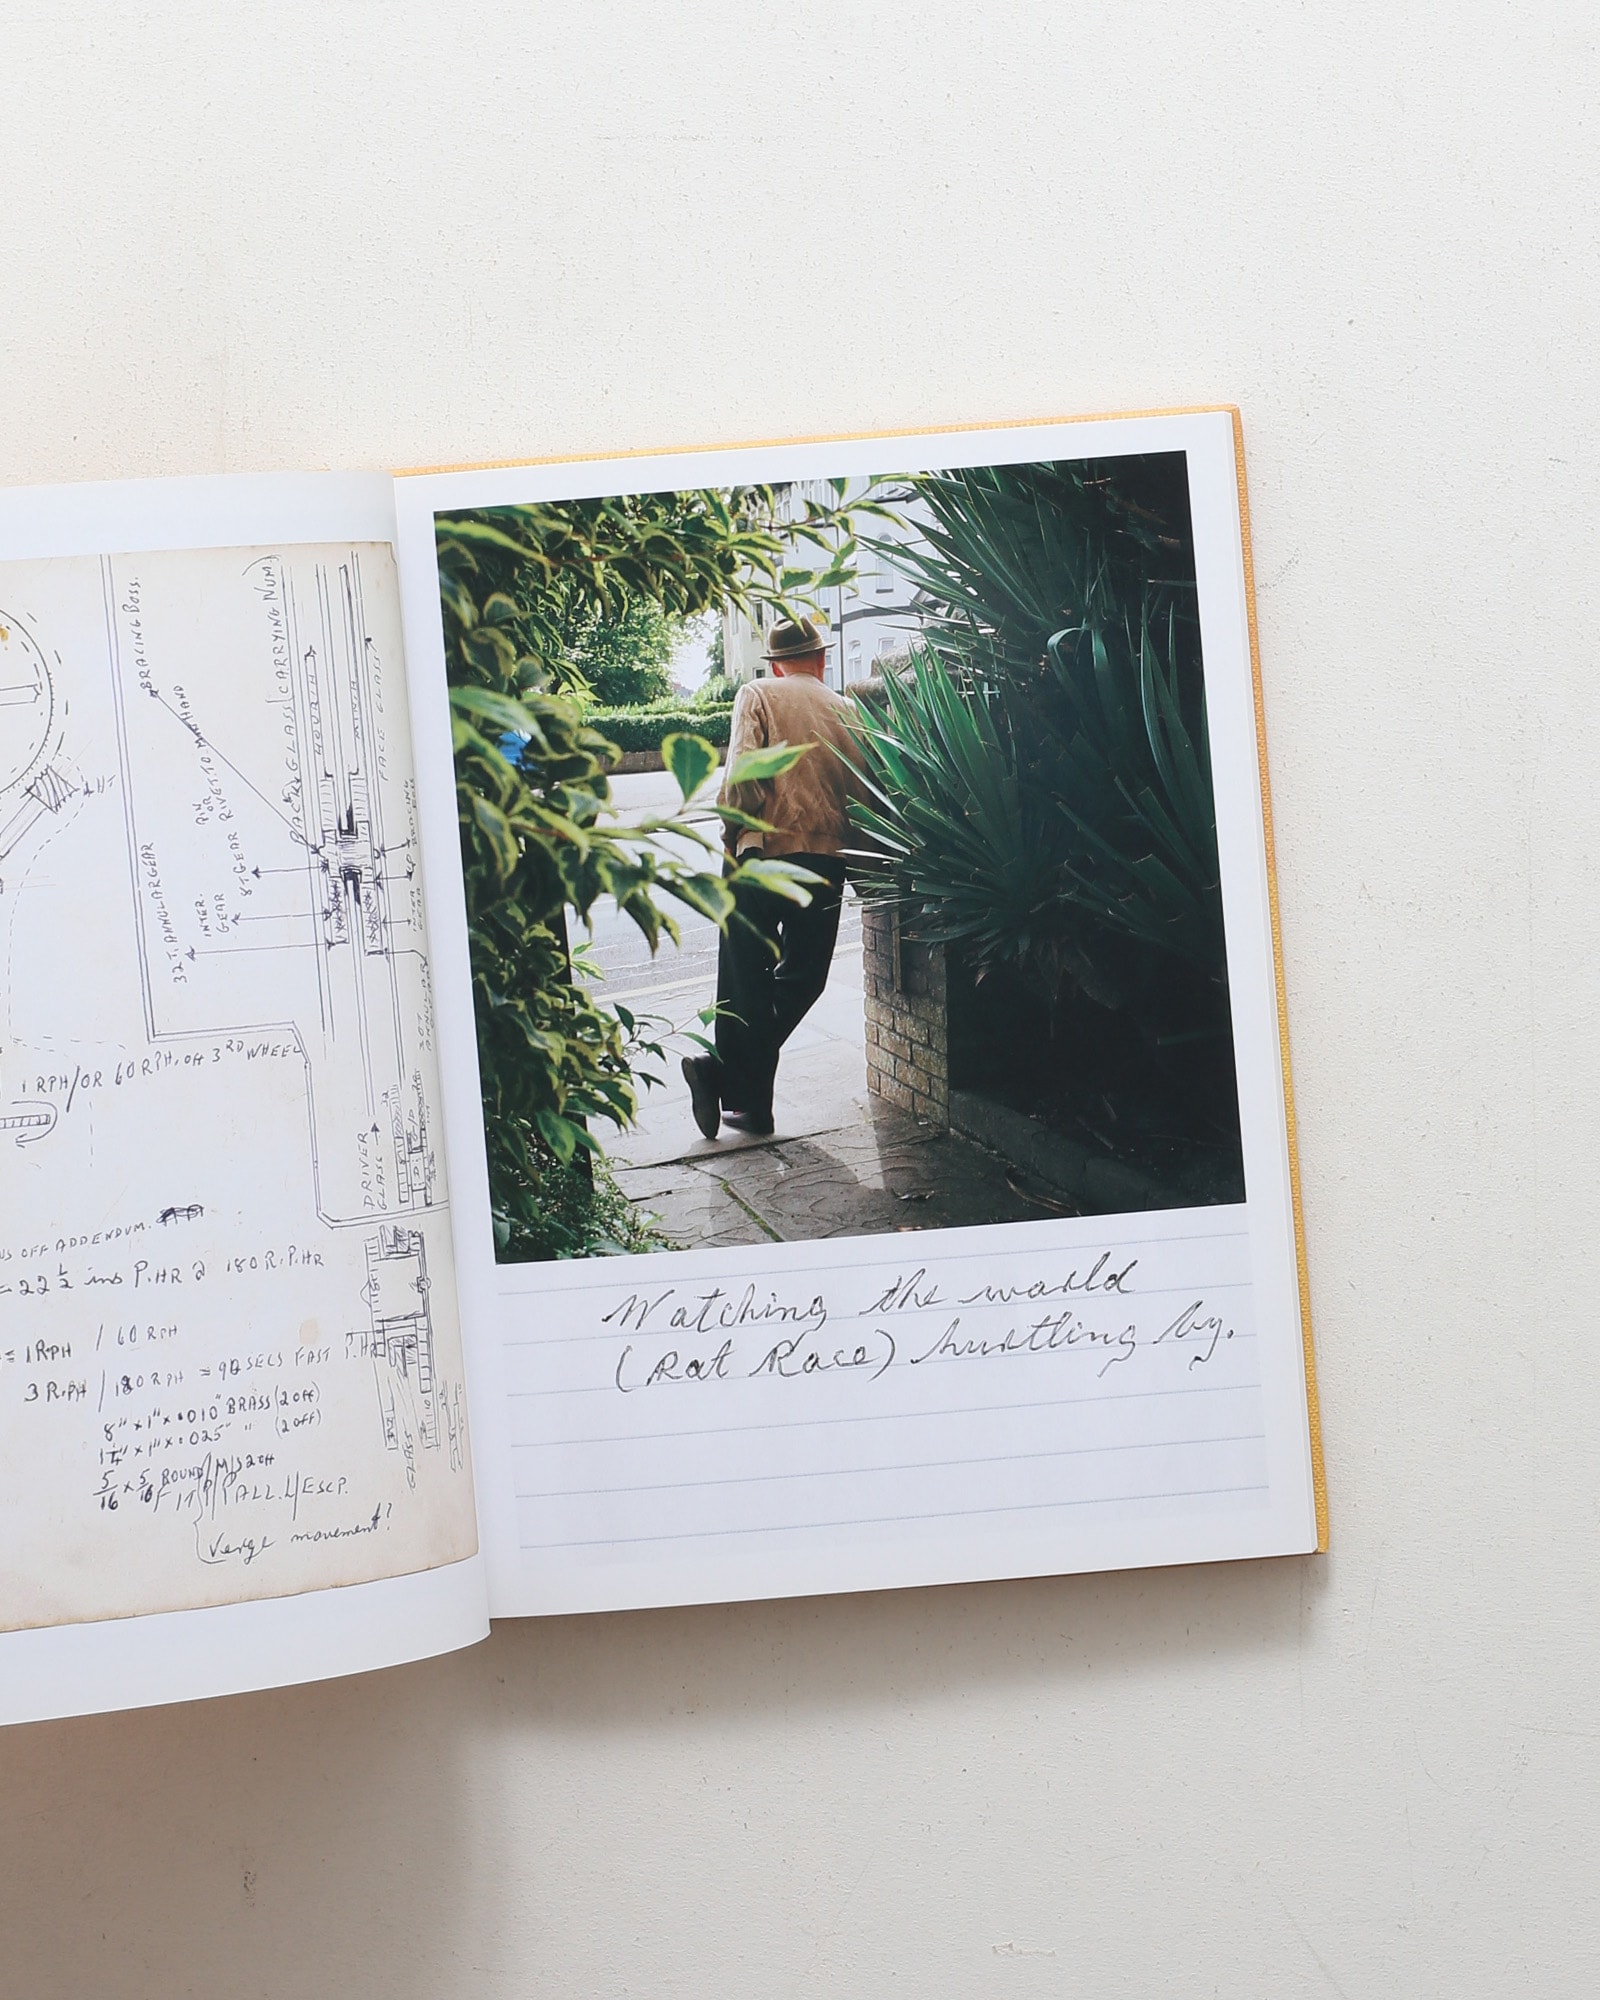 BRACING BOSS.
BACK GLASS (CARRYING NUM.)
HOUR H
MIN H
FACE GLASS
PIN OR RIVET TO MIN HAND
8T GEAR
INTER. GEAR
32 T. ANNULAR GEAR
1 RPH/OR 60 RPH. OFF 3RD WHEEL
DRIVER GLASS
OFF ADDENDUM.
= 22 1/2 ins P.HR @ 180 R.P.HR
= 1 RPH / 60 RPH
3 R.PH / 180 RPH = 90 SECS FAST P.HR
8" x 1" x .010" BRASS (2 OFF)
1 1/4" x 1" x .025" " (2 OFF)
5/16 x 5/16 ROUND/M/S 2 OFF
FIT P/PALL. L/ESCP.
Verge movement?
GLASS
Watching the world
(Rat Race) hustling by.